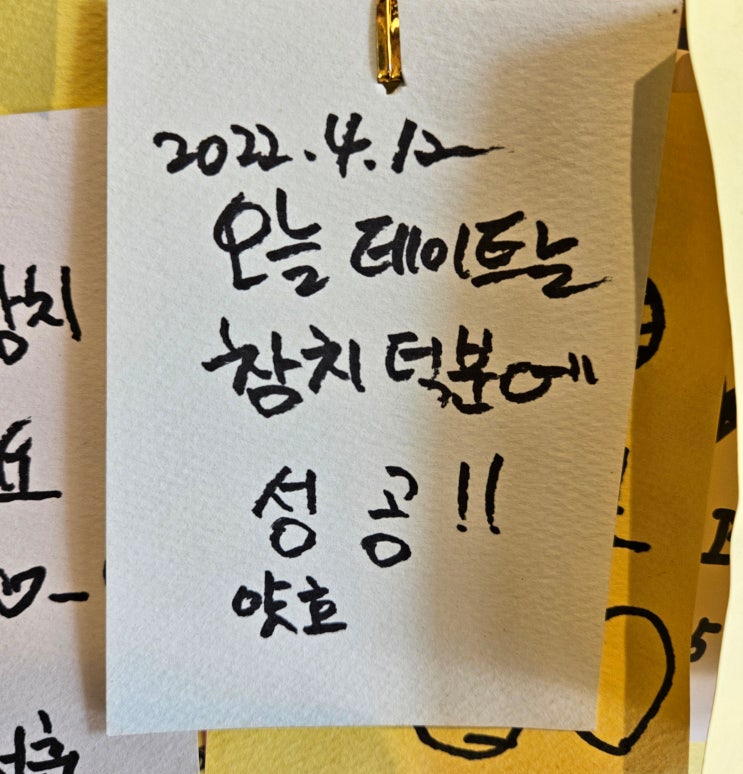 2022.4.12
오늘 데이트날
참치 덕분에
성공!!
얏호